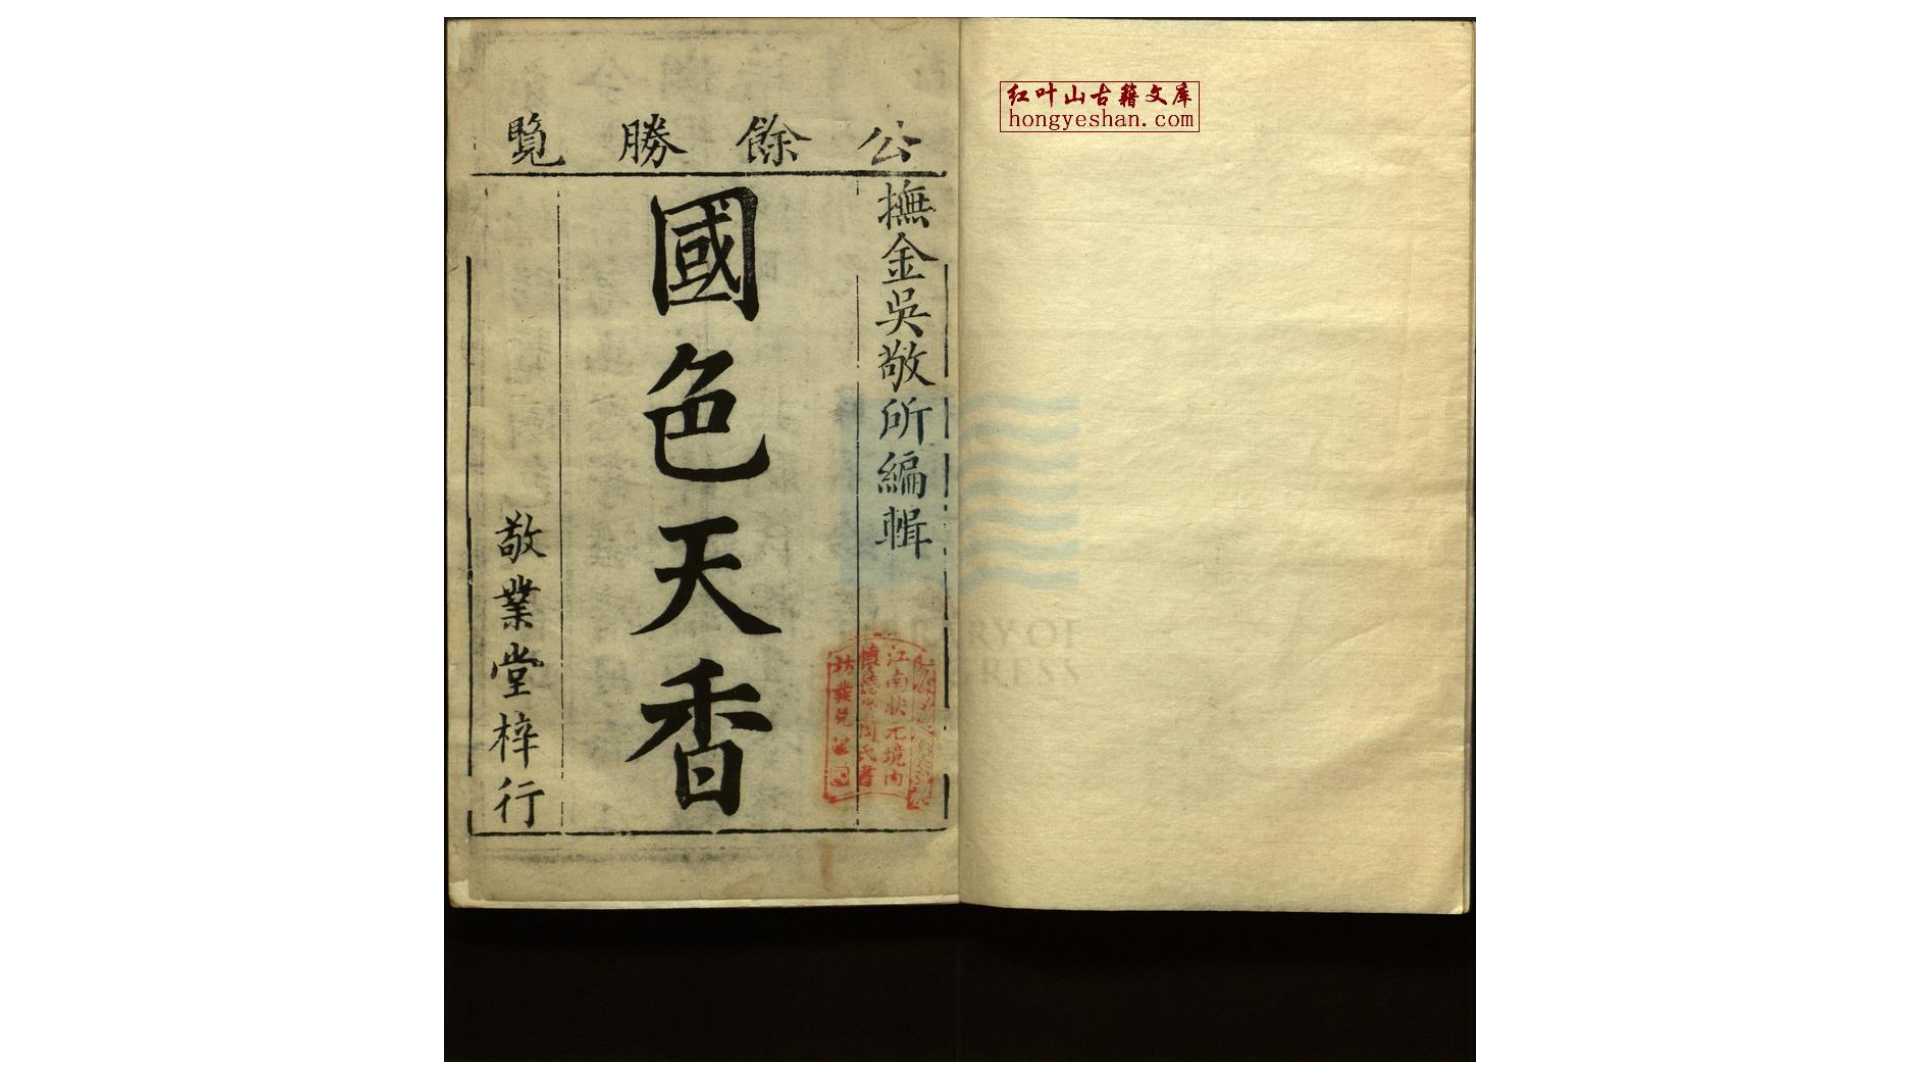 红叶山古籍文库
hongyeshan.com
公餘勝覽
撫金吳敬所編輯
國色天香
敬業堂梓行
江南狀元境內
周氏書
坊發兌
RY OF
RESS